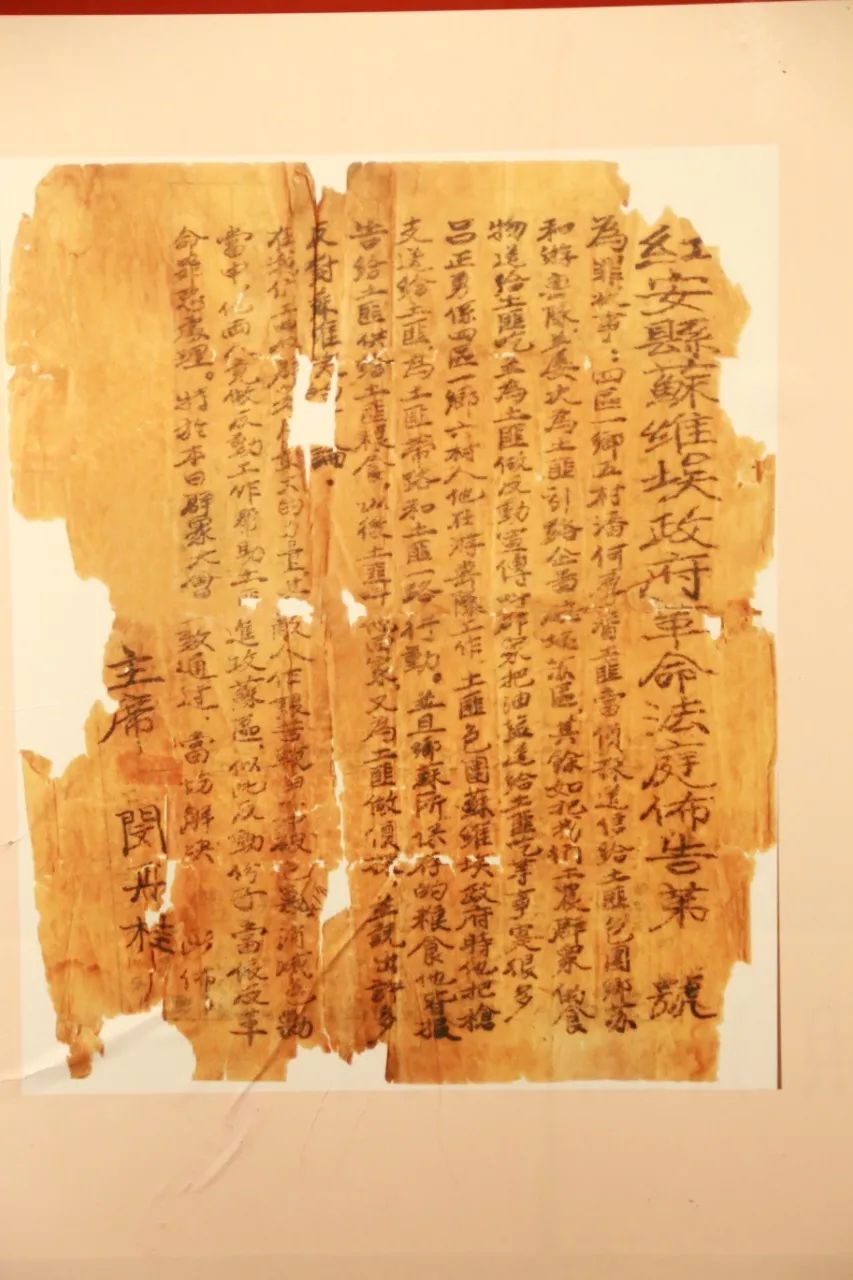 紅安縣蘇維埃政府革命法庭佈告第 號
為罪狀事：四區一鄉五村潘何 替土匪當偵探送信給土匪包圍鄉蘇
和游击隊，並屡次為土匪引路公 蘇區，其餘如把我們工農群眾 食
物送給土匪吃，並為土匪做反動宣傳叫群眾把油鹽送給土匪吃等事寔很多
呂正勇係四區一鄉六村人他在游击隊工作，土匪包圍蘇維埃政府時他把槍
支送給土匪為土匪带路和土匪一路行動。並且鄉蘇所保存的粮食他皆报
告給土匪供給土匪粮食，以後土匪叫他回家，又為土匪做偵探，並説出許多
反對蘇維埃的 論。
在我們工 大的力量 敵人作艱苦 消滅
當中，他两人竟做反動工作帮助土匪進攻蘇區，似此反動份子當依反革
命罪 處理。特於本日群眾大會 致通过，當場解决 此佈
主席 閔丹桂